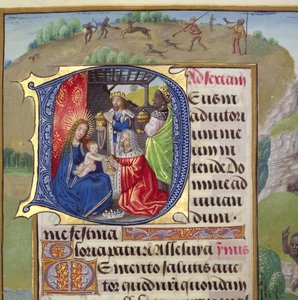 Ad sextam
Eus in
adiutori
um me
um in
tende Do
mine ad
iuuan
dum.
me festina
Gloria patri Alleluya ymus
Memento salutis auc
tor quod nr̃i quondam